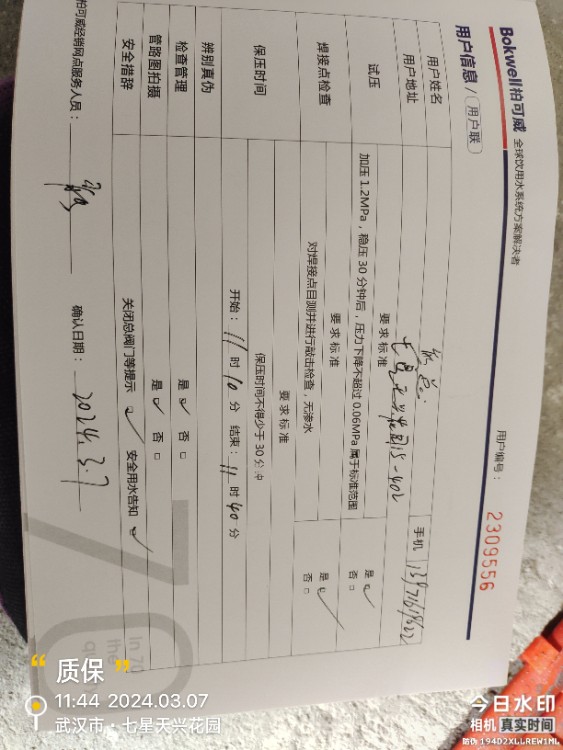 Bokwell柏可威 全球饮用水系统方案解决者
用户信息/用户联
用户编号：2309556
用户姓名
用户地址 七星天兴花园15-402 手机
试压 要求标准
加压 1.2MPa，稳压 30 分钟后，压力下降不超过 0.06MPa 属于标准范围 是 ✓ 否 □
焊接点检查 要求标准
对焊接点目测并进行敲击检查，无渗水 是 ✓ 否 □
保压时间 要求标准
保压时间不得少于 30 分钟
开始：11 时 10 分 结束：11 时 40 分
辨别真伪
检查管理 是 ✓ 否 □
管路图拍摄 是 ✓ 否 □
安全措辞 关闭总阀门等提示 ✓ 安全用水告知 ✓
柏可威经销网点服务人员：
确认日期：2024.3.7
70
In 7
the
q
质保
11:44 2024.03.07
武汉市·七星天兴花园
今日水印
相机 真实时间
防伪 194D2XLLREW1ML